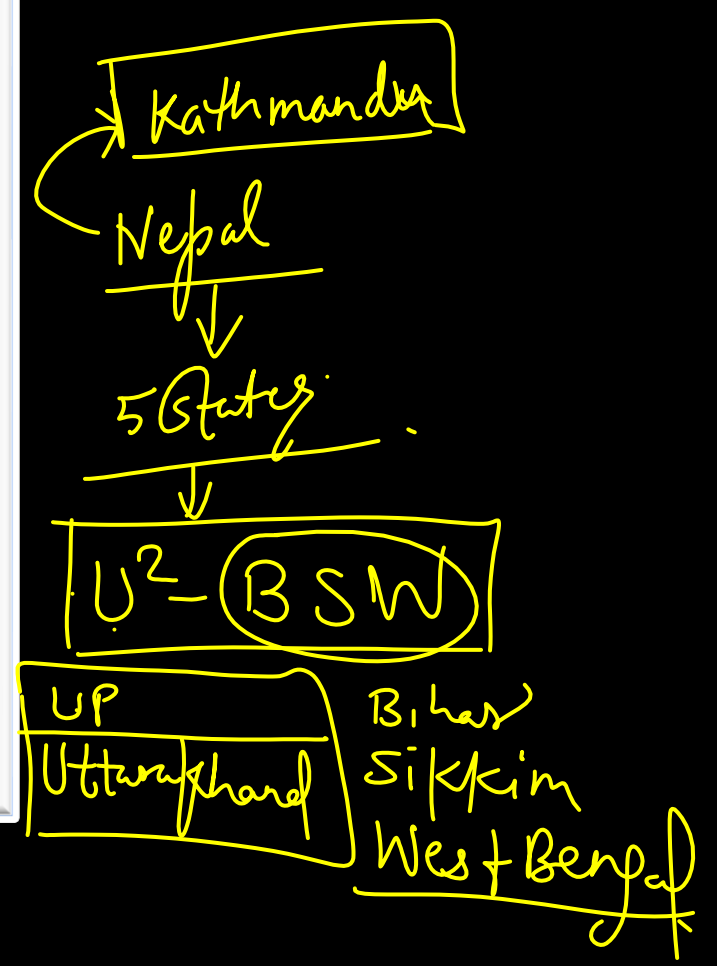 Kathmandu
Nepal
5 States
U²- BSW
UP
Uttarakhand
Bihar
Sikkim
West Bengal